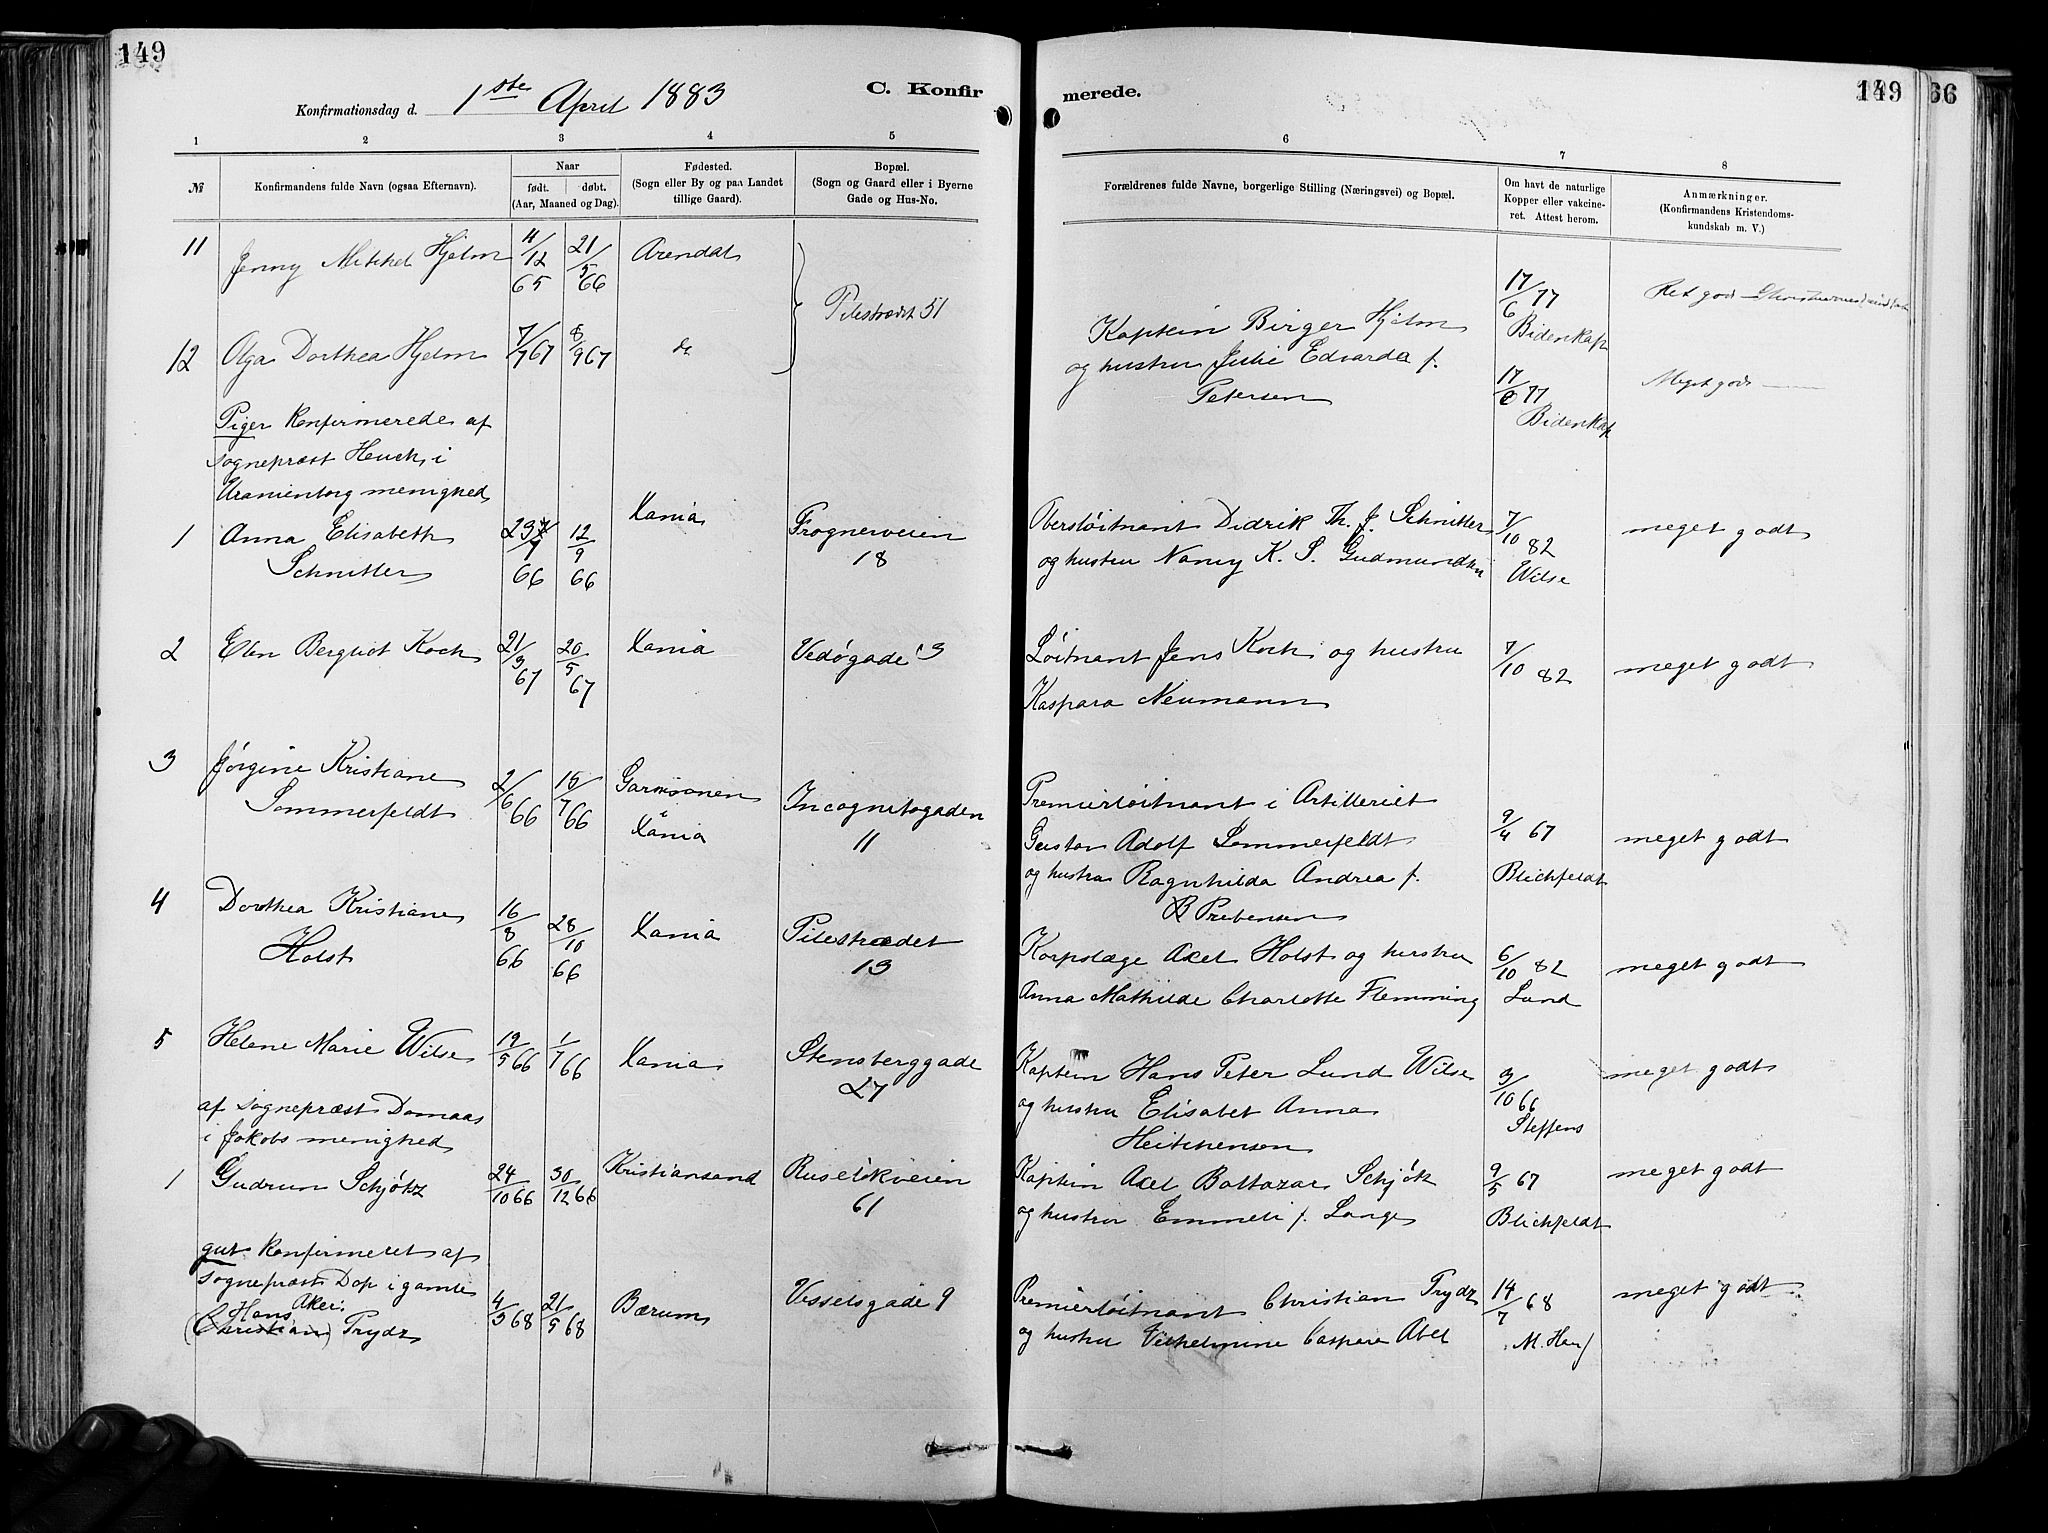 149
Konfirmationsdag d. 1ste April 1883
C. Konfir
merede.
149
66
1 2 3 4 5
6 7 8
№
Konfirmandens fulde Navn (ogsaa Efternavn).
Naar
født. døbt.
(Aar, Maaned og Dag).
Fødested.
(Sogn eller By og paa Landet
tillige Gaard).
Bopæl.
(Sogn og Gaard eller i Byerne
Gade og Hus-No.
Forældrenes fulde Navne, borgerlige Stilling (Næringsvei) og Bopæl.
Om havt de naturlige
Kopper eller vakcine-
ret. Attest herom.
Anmærkninger.
(Konfirmandens Kristendoms-
kundskab m. V.)
11 Jenny Mikkel Hjelm 4/12 65 21/5 66 Arendal
Pilestrædet 51
17/6 77
Bidenkap
Ret god
12 Olga Dorthea Hjelm 7/7 67 8/9 67 do
Kaptein Birger Hjelm
og hustru Julie Edvarda f.
Petersen
17/6 77
Bidenkap
Meget god
Piger konfirmerede af
sognepræst Heuch, i
Uranienborg menighed
1 Anna Elisabeth
Schnitler
66 12/9 66
Xania
Frognerveien
18
Oberstløitnant Didrik Th. J. Schnitler
og hustru Nanny K. S. Gudmundsen
7/10 82
Wilse
meget godt
2 Elen Bergliot Koch 21/3 67 20/5 67 Xania Vedøgade 13
Løitnant Jens Koch og hustru
Kaspara Neumann
7/10 82
meget godt
3 Jørgine Kristiane
Sommerfeldt
2/6 66 15/7 66
Garnisonen
Xania
Incognitogaden
11
Premierløitnant i Artilleriet
Gustav Adolf Sommerfeldt
og hustru Ragnhilda Andrea f.
Prebensen
9/4 67
Blichfeldt
meget godt
4 Dorthea Kristiane
Holst
16/8 66 28/10 66
Xania
Pilestrædet
13
Korpslæge Axel Holst og hustru
Anna Mathilde Charlotte Flemming
6/10 82
Lund
meget godt
5 Helene Marie Wilse 19/5 66 1/7 66 Xania
Stensberggade
27
Kaptein Hans Peter Lund Wilse
og hustru Elisabet Anna
3/10 66
Steffens
meget godt
af sognepræst Domaas
i Jakobs menighed
1 Gudrun Schjøtz 24/10 66 30/12 66 Kristiansand
Ruseløkveien
61
Kaptein Axel Baltazar Schjøtz
og hustru Emmeli f. Lange
9/5 67
Blichfeldt
meget godt
gut konfirmeret af
sognepræst Dop i gamle
Aker.
Hans
(Christian) Trydz
4/3 68 21/5 68 Bærum Vesselsgade 9
Premierløitnant Christian Trydz
og hustru Vilhelmine Caspara Abel
14/7 68
meget godt